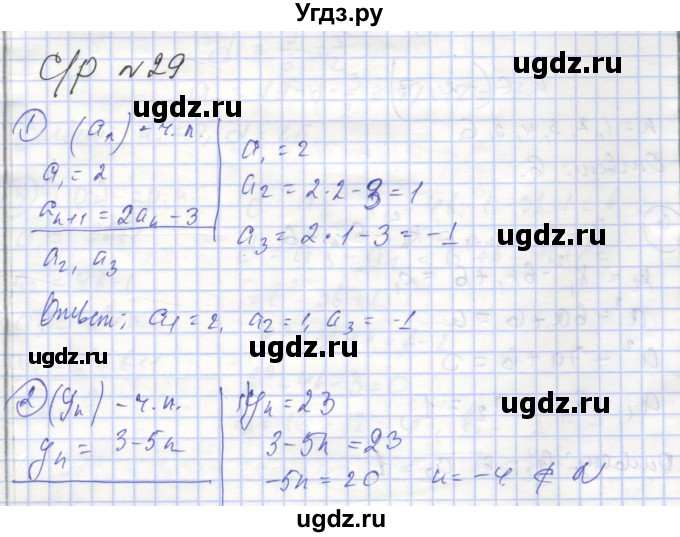 Угдз.ру
С/р №29
ugdz.ru
ugdz.ru
① (aₙ) - ч.п.
a₁ = 2
aₙ₊₁ = 2aₙ - 3
a₂, a₃
a₁ = 2
a₂ = 2·2-3 = 1
a₃ = 2·1-3 = -1
ugdz.ru
ugdz.ru
Ответ: a₁ = 2, a₂ = 1, a₃ = -1
ugdz.ru
ugdz.ru
② (yₙ) - ч.п.
yₙ = 3-5n
1) yₙ = 23
3-5n = 23
-5n = 20 n = -4 ∉ N
ugdz.ru
ugdz.ru
ugdz.ru